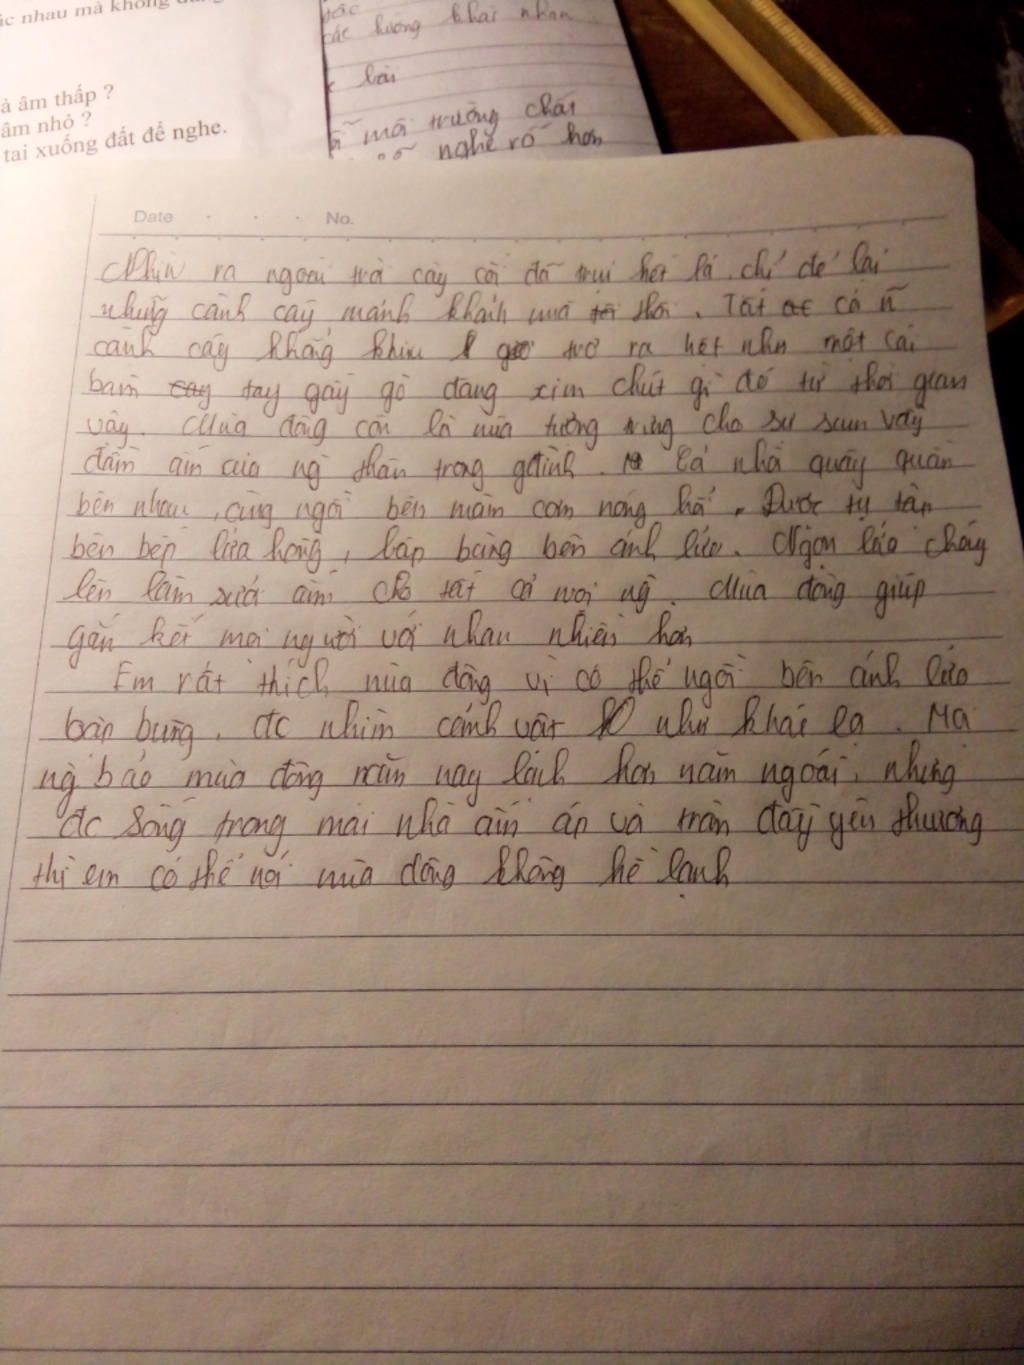 ác nhau mà không
à âm thấp ?
âm nhỏ ?
tai xuống đất để nghe.
các hướng khai nhau
bài
môi trường chất
nghe rõ hơn
Date . . . No.
Nhìn ra ngoài trời cây cối đã trụi hết lá chỉ để lại
những cành cây mảnh khảnh mà thôi. Tất cả n~
cành cây khẳng khiu trơ ra hết như một cái
bàn tay gầy gò đang xin chút gì đó từ thời gian
vậy. Mùa đông còn là mùa tượng trưng cho sự sum vầy
đầm ấm của ng thân trong gđình. Cả nhà quây quần
bên nhau, cùng ngồi bên mâm cơm nóng hổi. Được tụ tập
bên bếp lửa hồng, bập bùng bên ánh lửa. Ngọn lửa cháy
lên làm sưởi ấm cho tất cả mọi ng. Mùa đông giúp
gắn kết mọi người với nhau nhiều hơn
Em rất thích mùa đông vì có thể ngồi bên ánh lửa
bập bùng, đc nhìn cảnh vật như khác lạ. Mọi
ng bảo mùa đông năm nay lạnh hơn năm ngoái, nhưng
đc sống trong mái nhà ấm áp và tràn đầy yêu thương
thì em có thể nói mùa đông không hề lạnh